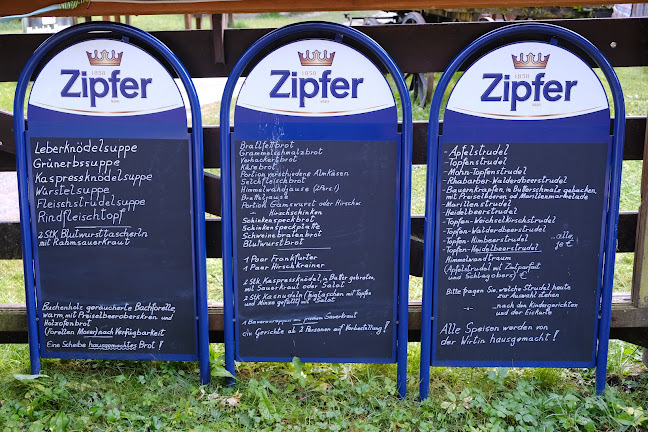 1858
Zipfer
Leberknödelsuppe
Grünerbssuppe
Kaspressknödelsuppe
Würstelsuppe
Fleischstrudelsuppe
Rindfleischtopf
2 Stk Blutwursttascherln
mit Rahmsauerkraut
Buchenholz geräucherte Bachforelle
warm mit Preiselbeeroberskren und
Holzofenbrot
(Forellen Moser) nach Verfügbarkeit
Eine Scheibe hausgemachtes Brot !
1858
Zipfer
Bratlfettbrot
Grammelschmalzbrot
Verhackertbrot
Käsebrot
Portion verschiedene Almkäsen
Selchfleischbrot
Himmelwandjause (2 Pers.!)
Brettljause
Portion Gamswurst oder Hirsch
Hirschschinken
Schinkenspeckbrot
Schinkenspeckplatte
Schweinebratenbrot
Blutwurstbrot
1 Paar Frankfurter
1 Paar Hirschkrainer
2 Stk Kaspressknödel, in Butter gebraten,
mit Sauerkraut oder Salat
2 Stk Kasnudeln (Teigtaschen mit Topfen
und Minze gefüllt) mit Salat
1 Bauernkrapfen mit Sauerkraut
Gerichte ab 2 Personen auf Vorbestellung !
1858
Zipfer
- Apfelstrudel
- Topfenstrudel
- Mohn-Topfenstrudel
- Rhabarber-Walderdbeerstrudel
- Bauernkrapfen, in Butterschmalz gebacken,
mit Preiselbeeren od Marillenmarmelade
- Marillenstrudel
- Heidelbeerstrudel
- Topfen-Weichselkirschstrudel
- Topfen-Walderdbeerstrudel
- Topfen-Himbeerstrudel
- Topfen-Heidelbeerstrudel
Himmelwandtraum
(Apfelstrudel mit Zimtparfait
und Schlagobers)
Bitte fragen Sie, welche Strudel heute
zur Auswahl stehen
nach den Kindergerichten
und der Eiskarte
Alle Speisen werden von
der Wirtin hausgemacht !